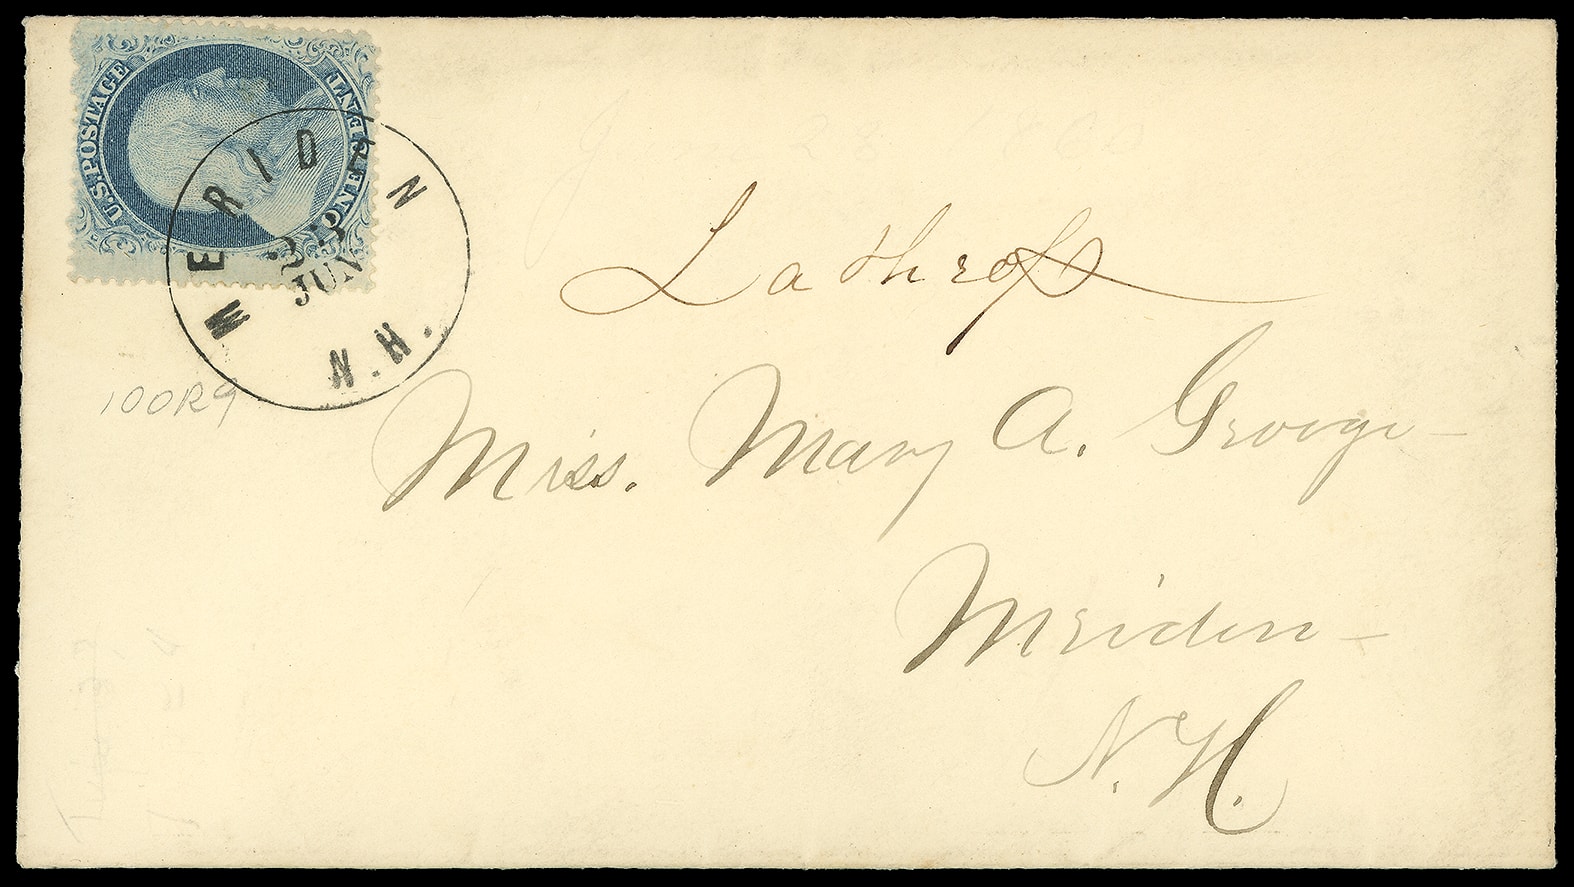 U.S. POSTAGE
ONE CENT
MERIDEN
23
JUN
N.H.
Lathrop
100R9
Miss. Mary A. George
Meriden
N.H.